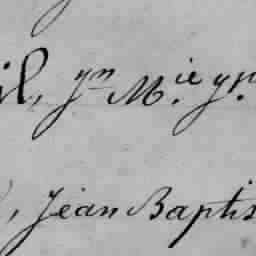 il, yn M.ie yr.
, Jean Baptis